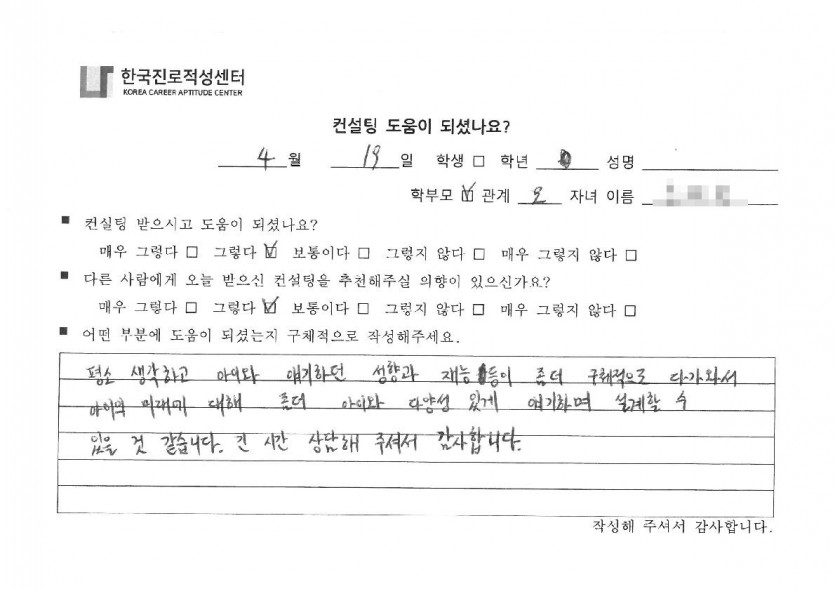 한국진로적성센터
KOREA CAREER APTITUDE CENTER
컨설팅 도움이 되셨나요?
4 월 19 일 학생 □ 학년 성명
학부모 ☑ 관계 모 자녀 이름
■ 컨설팅 받으시고 도움이 되셨나요?
매우 그렇다 □ 그렇다 ☑ 보통이다 □ 그렇지 않다 □ 매우 그렇지 않다 □
■ 다른 사람에게 오늘 받으신 컨설팅을 추천해주실 의향이 있으신가요?
매우 그렇다 □ 그렇다 ☑ 보통이다 □ 그렇지 않다 □ 매우 그렇지 않다 □
■ 어떤 부분에 도움이 되셨는지 구체적으로 작성해주세요.
평소 생각하고 아이와 얘기하던 성향과 재능 등이 좀더 구체적으로 다가와서
아이의 미래에 대해 좀더 아이와 다양성 있게 얘기하며 설계할 수
있을 것 같습니다. 긴 시간 상담해 주셔서 감사합니다.
작성해 주셔서 감사합니다.